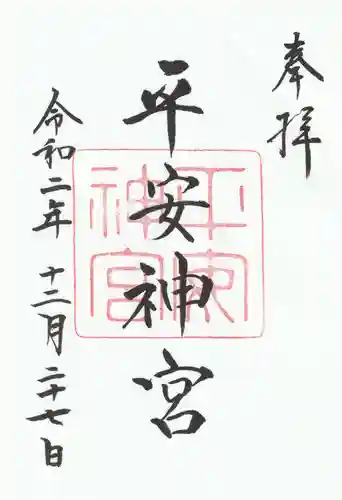 奉拝
平安神宮
平安神宮
令和二年 十二月 二十七日